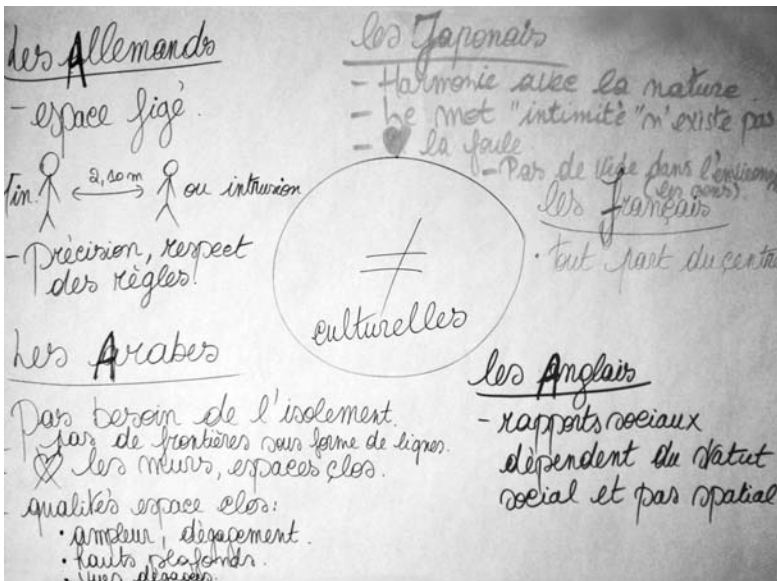 Les Allemands
- espace figé.
2,10m
ou intrusion
- Précision, respect
des règles.
les Japonais
- Harmonie avec la nature
- Le mot "intimité" n'existe pas
- ♥ la foule
- Pas de vide dans
(les gens).
les français
• tout part du centre
≠
culturelles
Les Arabes
Pas besoin de l'isolement.
pas de frontières sous forme de lignes.
- ♡ les murs, espaces clos.
- qualités espace clos:
• ampleur, dégagement.
• hauts plafonds.
• vues
les Anglais
- rapports sociaux
dépendent du statut
social et pas spatial